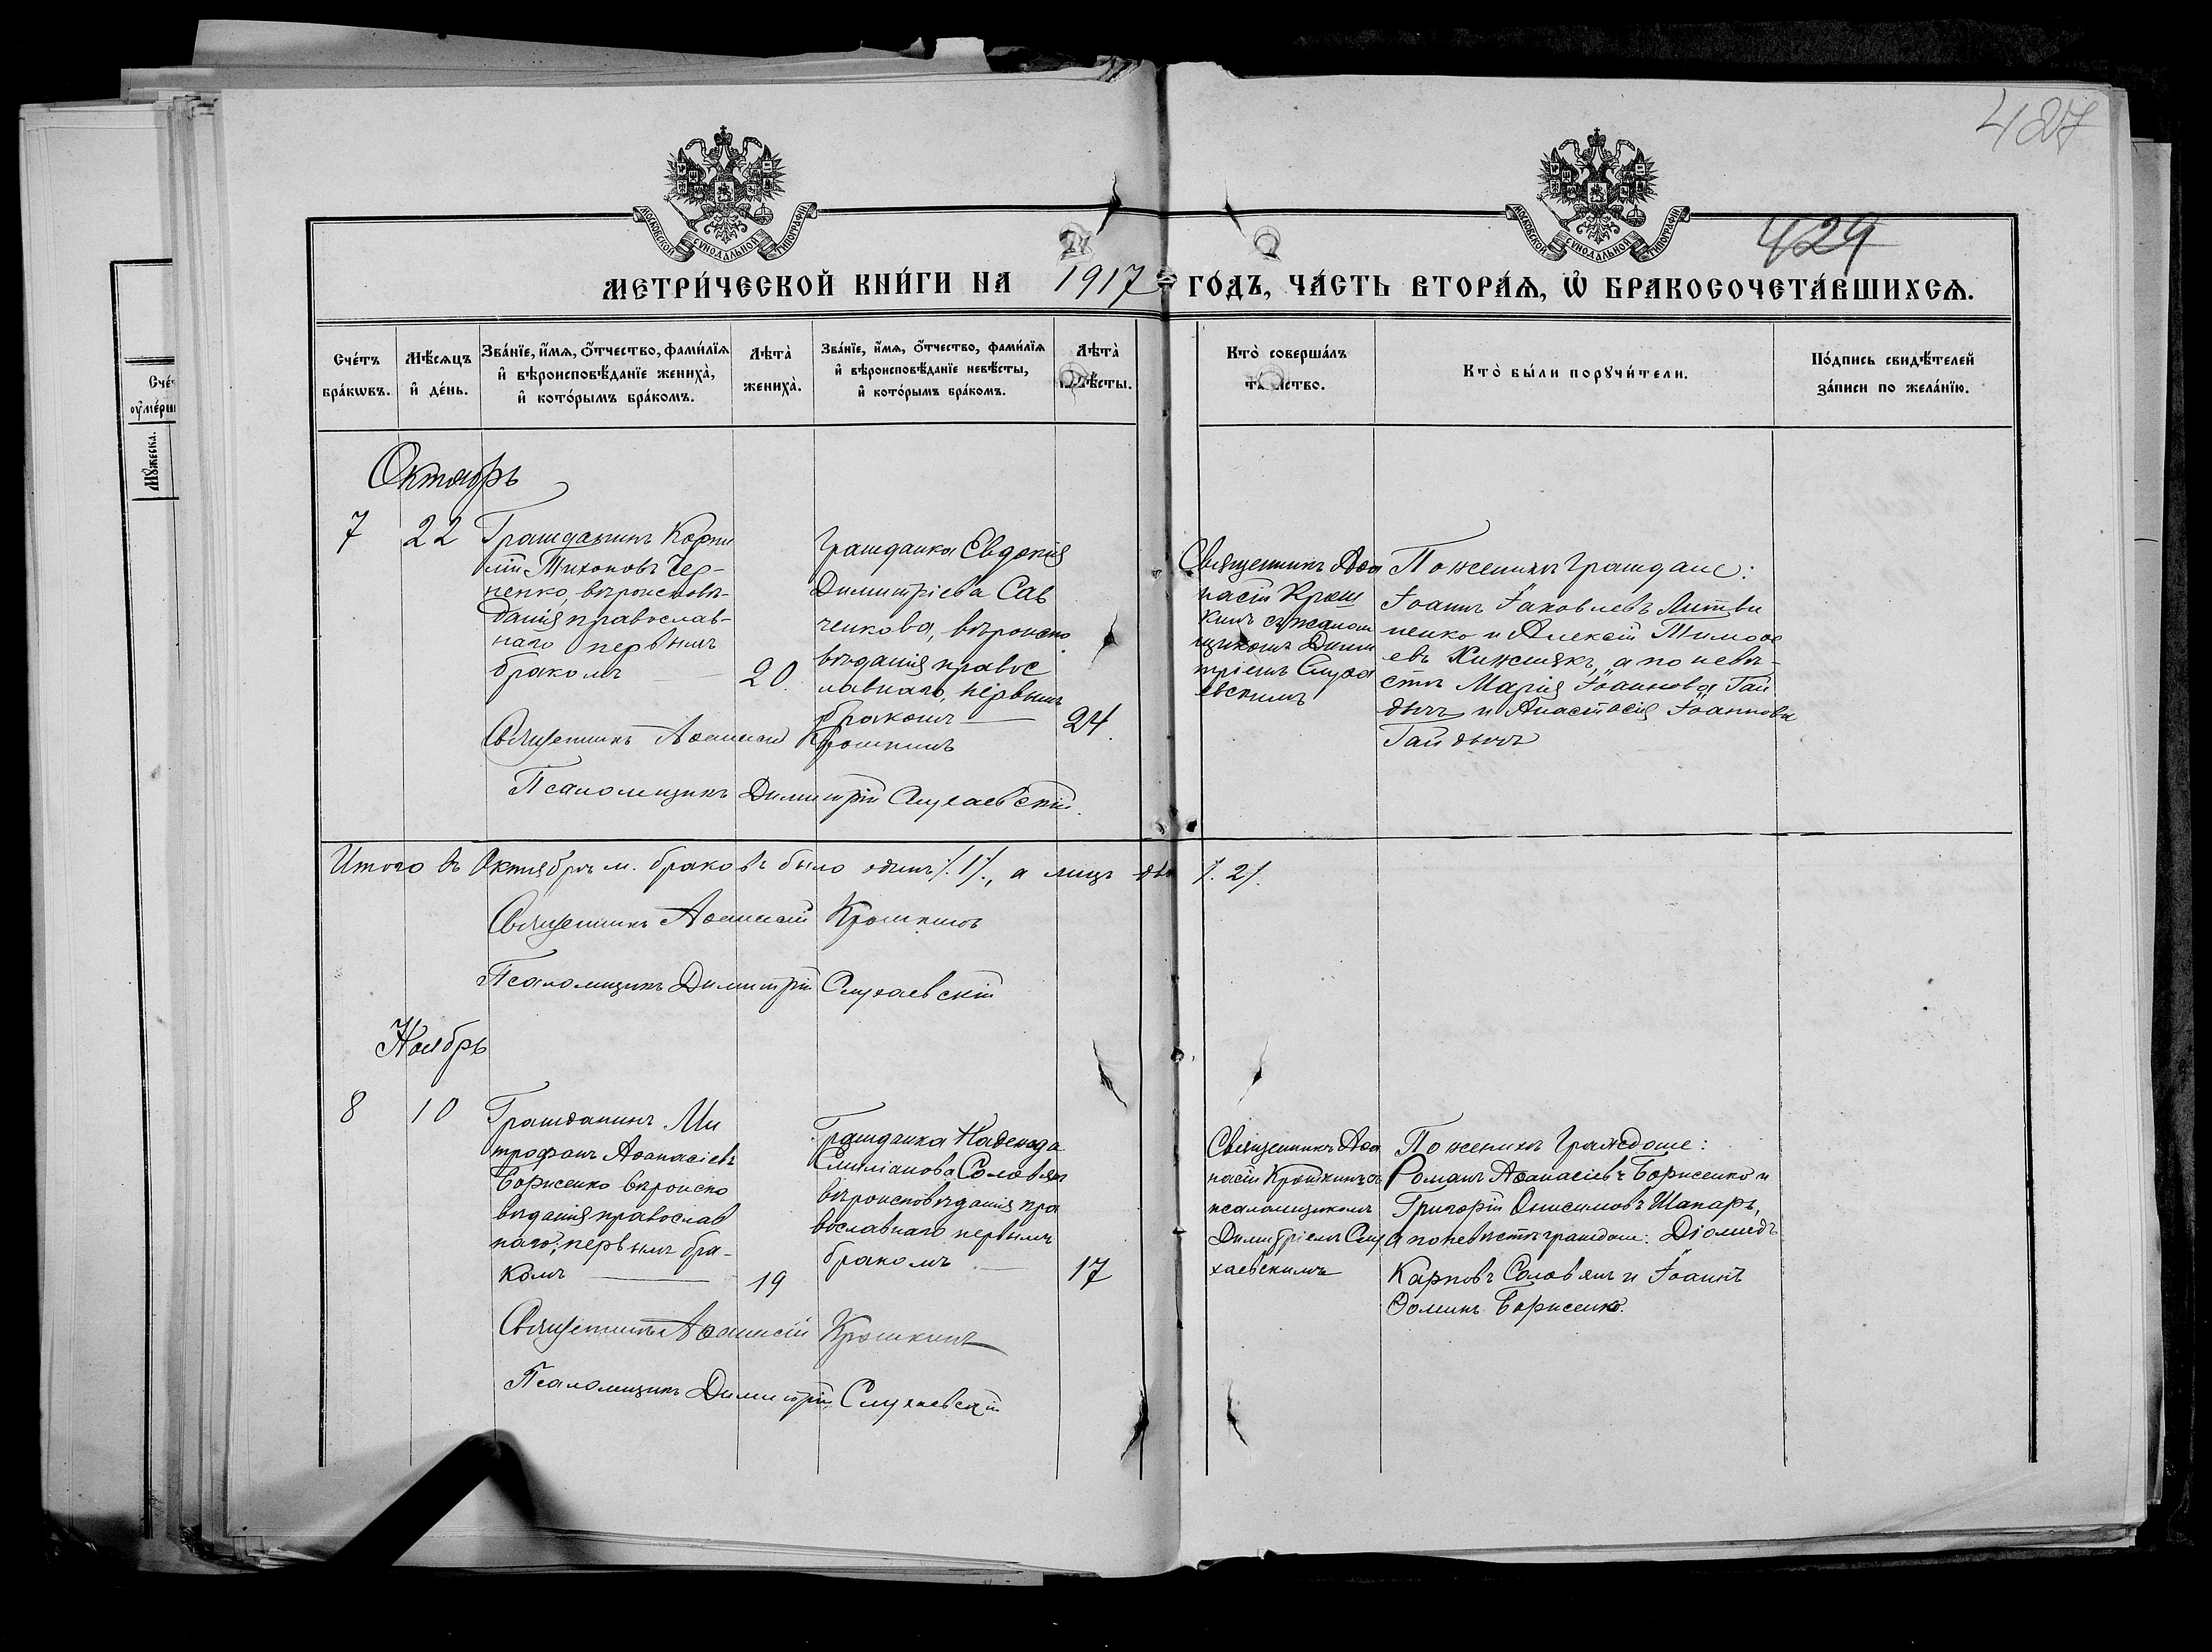 427
429
МОСКОВСКОЙ СѴНОДАЛЬНОЙ ТИПОГРАФІИ
МОСКОВСКОЙ СѴНОДАЛЬНОЙ ТИПОГРАФІИ
МЕТРИ́ЧЕСКОЙ КНИ́ГИ НА 1917 ГО́ДЪ, ЧА́СТЬ ВТОРА́Ѧ, Ѡ҆ БРАКОСОЧЕТА́ВШИХСѦ.
Сче́тъ
бра́кѡвъ.
Мѣ́сѧцъ
и҆ де́нь.
Зва́нїе, и҆́мѧ, ѻ҆́тчество, фами́лїѧ
и҆ вѣроисповѣ́данїе жениха̀,
и҆ кото́рымъ бра́комъ.
Лѣта̀
жениха̀.
Зва́нїе, и҆́мѧ, ѻ҆́тчество, фами́лїѧ
и҆ вѣроисповѣ́данїе невѣ́сты,
и҆ кото́рымъ бра́комъ.
Лѣта̀
невѣ́сты.
Кто̀ соверша́лъ
та́инство.
Кто̀ бы́ли порꙋчи́тели.
По́дпись свидѣ́телей
за́писи по жела́нїю.
Октябрь
7
22
Гражданинъ Корни
лій Тихоновъ Чер-
ненко, вѣроисповѣ-
данія православ-
наго первымъ
бракомъ
20.
Гражданка Евдокія
Димитріева Сав
ченкова, вѣроиспо
вѣданія правос
лавнаго, первымъ
бракомъ
24.
Священникъ Аѳа
насій Крош
кинъ съ псалом
щикомъ Дими
тріемъ Слуха
евскимъ
По женихѣ граждане:
Іоаннъ Іаковлевъ Литви
ненко и Алексій Тимоѳе
евъ Хижнякъ, а по невѣ-
стѣ Марія Іоаннова Гай
дычъ и Анастасія Іоаннова
Гайдычъ
Священникъ Аѳанасій Крошкинъ
Псаломщикъ Димитрій Слухаевскій.
Итого въ Октябрѣ м. браковъ было одинъ /.1/., а лицъ два /. 2/.
Священникъ Аѳанасій Крошкинъ
Псаломщикъ Димитрій Слухаевскій
Ноябрь
8
10
Гражданинъ Ми
трофанъ Аѳанасіевъ
Борисенко вѣроиспо
вѣданія православ
наго, первымъ бра-
комъ
19
Гражданка Надежда
Емиліанова Соловьянъ
вѣроисповѣданія пра
вославнаго первымъ
бракомъ
17
Священникъ Аѳа
насій Крошкинъ съ
псаломщикомъ
Димитріемъ Слу
хаевскимъ
По женихѣ граждане:
Романъ Аѳанасіевъ Борисенко и
Григорій Онисимовъ Шапарь,
а по невѣстѣ граждане: Діомидъ
Карповъ Соловьянъ и Іоаннъ
Ѳоминъ Борисенко.
Священникъ Аѳанасій Крошкинъ
Псаломщикъ Димитрій Слухаевскій
Сче́
ѹ҆ме́рш
Мꙋ́жеска.